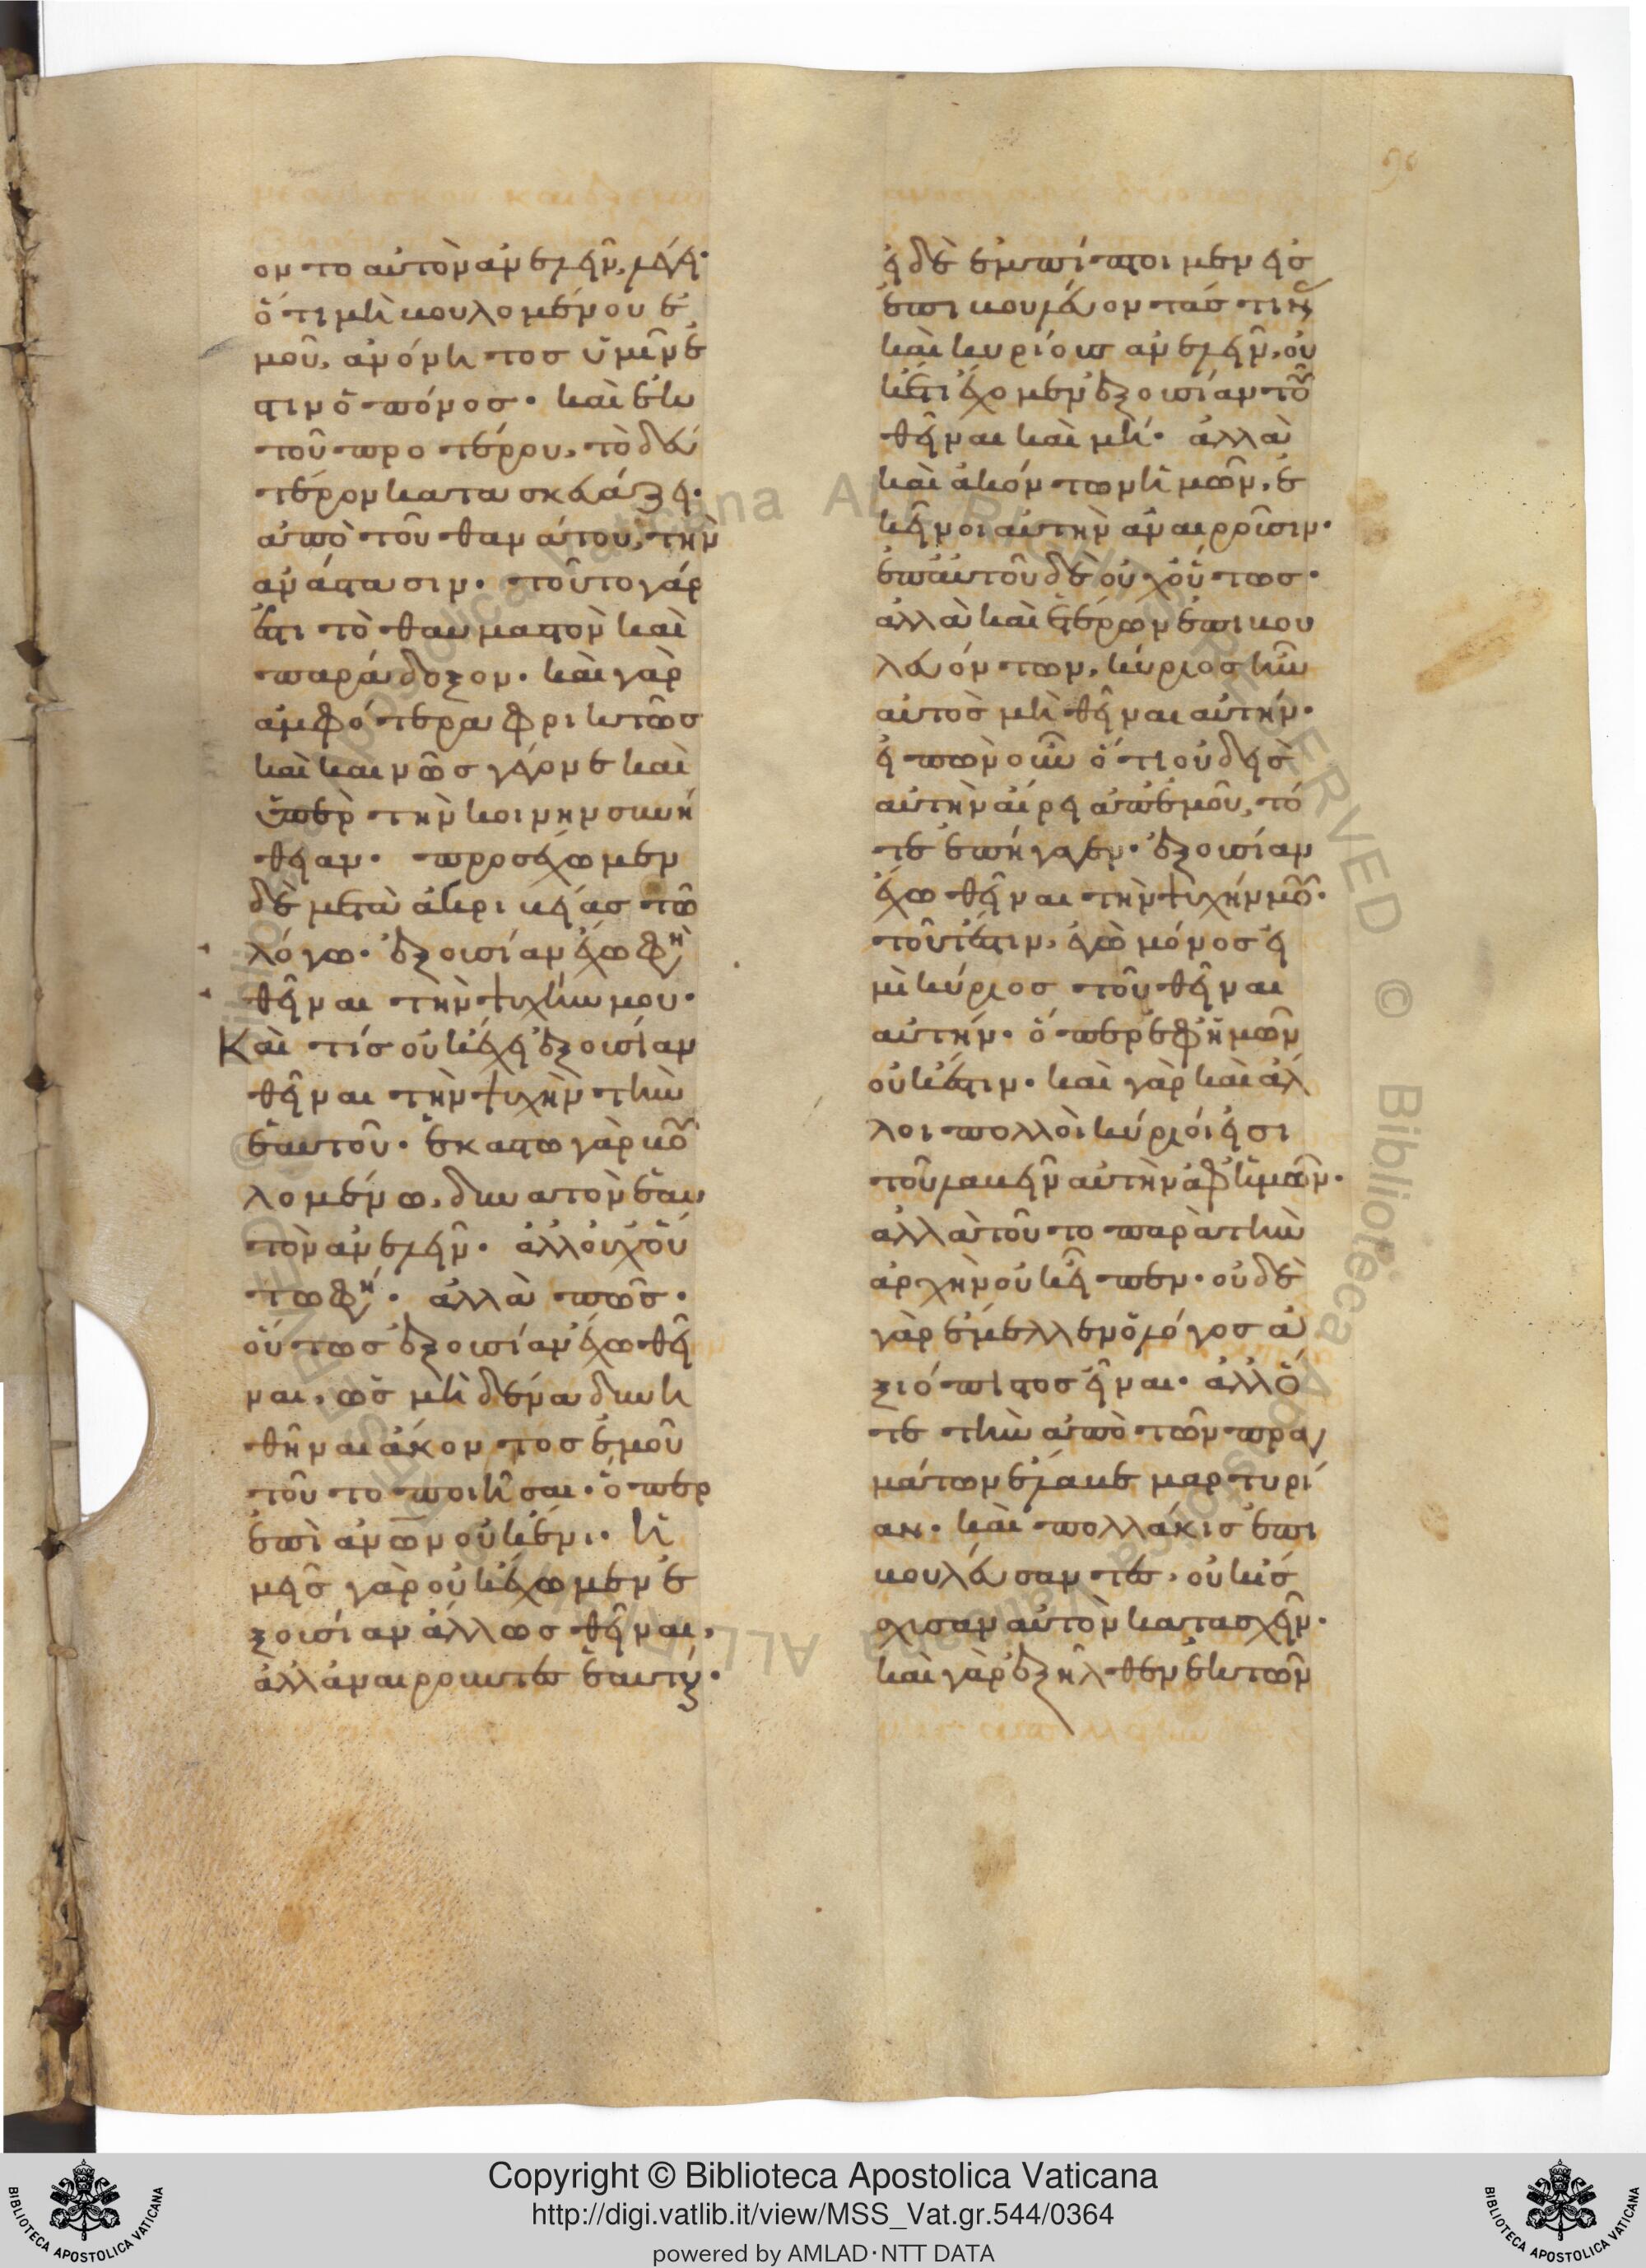 ον το αὐτὸν ἀνελεῖν, λέγει·
ὅτι μὴ βουλομένου ἐ
μοῦ, ἀνόνητος ὑμῖν ἐ
στιν ὁ πόνος· καὶ ἐκ
τοῦ προτέρου, τὸ δεύ
τερον κατασκευάζει·
ἀπὸ τοῦ θανάτου, τὴν
ἀνάστασιν· τοῦτο γάρ
ἐστι τὸ θαυμαστὸν καὶ
παράδοξον· καὶ γὰρ
ἀμφότερα φρικτῶς
καὶ καινῶς γέγονε καὶ
ὑπὲρ τὴν κοινὴν συνή
θειαν· προσέχωμεν
δὲ μετὰ ἀκριβείας τῶ
λόγω· ἐξουσίαν ἔχω φησὶ
θεῖναι τὴν ψυχήν μου·
Καὶ τίς οὐκ ἔχει ἐξουσίαν
θεῖναι τὴν ψυχὴν τὴν
ἑαυτοῦ· ἑκάστω γὰρ βου
λομένω, δυνατὸν ἑαυ
τὸν ἀνελεῖν· ἀλλ οὐχ οὕ
τω φησί· ἀλλὰ πῶς·
οὕτως ἐξουσίαν ἔχω θεῖ
ναι, ὡς μηδένα δυνη
θῆναι ἄκοντος ἐμοῦ
τοῦτο ποιῆσαι· ὅπερ
ἐπὶ ἀνῶν οὐκ ἔνι· ἡ
μεῖς γὰρ οὐκ ἔχομεν ἐ
ξουσίαν ἄλλως θεῖναι,
ἀλλ ἀναιροῦντες ἑαυτούς·
εἰ δὲ ἐμπέσοιμεν εἰς
ἐπιβουλεύοντάς τινας
καὶ κυρίους ἀνελεῖν, οὐ
κέτι ἔχομεν ἐξουσίαν τοῦ
θεῖναι καὶ μή· ἀλλὰ
καὶ ἀκόντων ἡμῶν, ἐ
κεῖνοι αὐτὴν ἀναιροῦσιν·
ἐπ αὐτοῦ δὲ οὐχ οὕτως·
ἀλλὰ καὶ ἑτέρων ἐπιβου
λευόντων, κύριος ἦν
αὐτὸς μὴ θεῖναι αὐτήν·
εἰπὼν οὖν ὅτι οὐδεὶς
αὐτὴν αἴρει ἀπ ἐμοῦ, τό
τε ἐπήγαγεν· ἐξουσίαν
ἔχω θεῖναι τὴν ψυχήν μου·
τοῦτέστιν, ἐγὼ μόνος εἰ
μὶ κύριος τοῦ θεῖναι
αὐτήν· ὅπερ ἐφ ἡμῶν
οὐκ ἔστιν· καὶ γὰρ καὶ ἄλ
λοι πολλοὶ κύριοί εἰσι
τοῦ λαβεῖν αὐτὴν ἀφ ἡμῶν·
ἀλλὰ τοῦτο παρὰ τὴν
ἀρχὴν οὐκ εἶπεν· οὐδὲ
γὰρ ἔμελλεν ὁ λόγος ἀ
ξιόπιστος εἶναι· ἀλλ ὅ
τε τὴν ἀπὸ τῶν πραγ
μάτων ἔλαβε μαρτυρί
αν· καὶ πολλάκις ἐπι
βουλεύσαντες, οὐκ ἴσ
χυσαν αὐτὸν κατασχεῖν·
καὶ γὰρ ἐξῆλθεν ἐκ τῶν
Copyright © Biblioteca Apostolica Vaticana
http://digi.vatlib.it/view/MSS_Vat.gr.544/0364
powered by AMLAD·NTT DATA